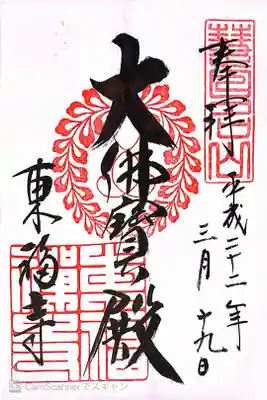 奉拝
平成二十二年
三月十九日
大佛寳殿
東福寺
CamScannerでスキャン